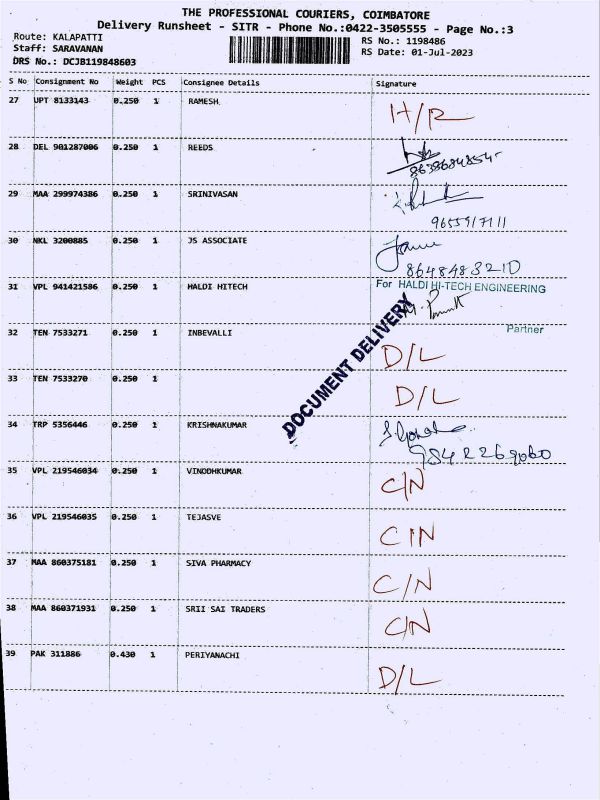 THE PROFESSIONAL COURIERS, COIMBATORE
Delivery Runsheet - SITR - Phone No.:0422-3505555 - Page No.:3
Route: KALAPATTI
RS No.: 1198486
Staff: SARAVANAN
RS Date: 01-Jul-2023
DRS No.: DCJB119848603
S No Consignment No Weight PCS Consignee Details Signature
27 UPT 8133143 0.250 1 RAMESH H/R
28 DEL 901287006 0.250 1 REEDS
29 MAA 299974386 0.250 1 SRINIVASAN
30 NKL 3200885 0.250 1 JS ASSOCIATE
8648483210
31 VPL 941421586 0.250 1 HALDI HITECH For HALDI HI-TECH ENGINEERING
Partner
DOCUMENT DELIVERY
32 TEN 7533271 0.250 1 INBEVALLI D/L
33 TEN 7533270 0.250 1 D/L
34 TRP 5356446 0.250 1 KRISHNAKUMAR
9842269060
35 VPL 219546034 0.250 1 VINODHKUMAR C/N
36 VPL 219546035 0.250 1 TEJASVE C/N
37 MAA 860375181 0.250 1 SIVA PHARMACY C/N
38 MAA 860371931 0.250 1 SRII SAI TRADERS C/N
39 PAK 311886 0.430 1 PERIYANACHI D/L